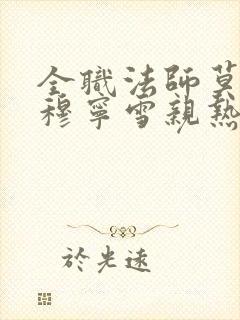 全職法師莫
穆寧雪親熱
於光遠